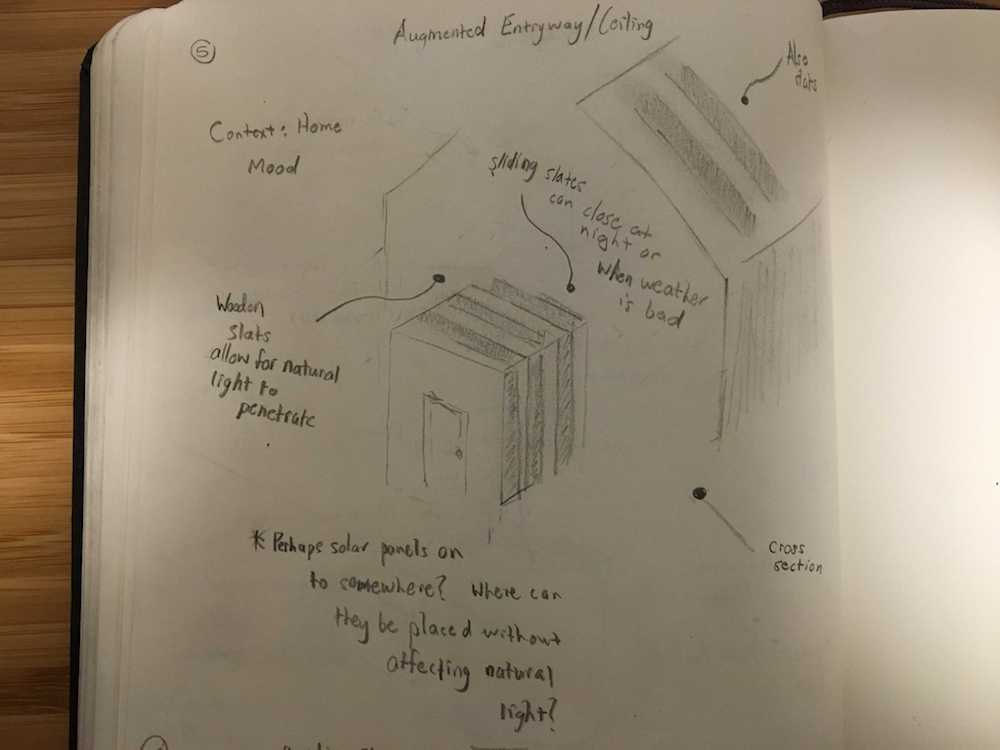 5
Augmented Entryway/Ceiling
Also
slats
Context: Home
Mood
sliding slates
can close at
night or
when weather
is bad
Wooden
slats
allow for natural
light to
penetrate
* Perhaps solar panels on
to somewhere? Where can
they be placed without
affecting natural
light?
Cross
section